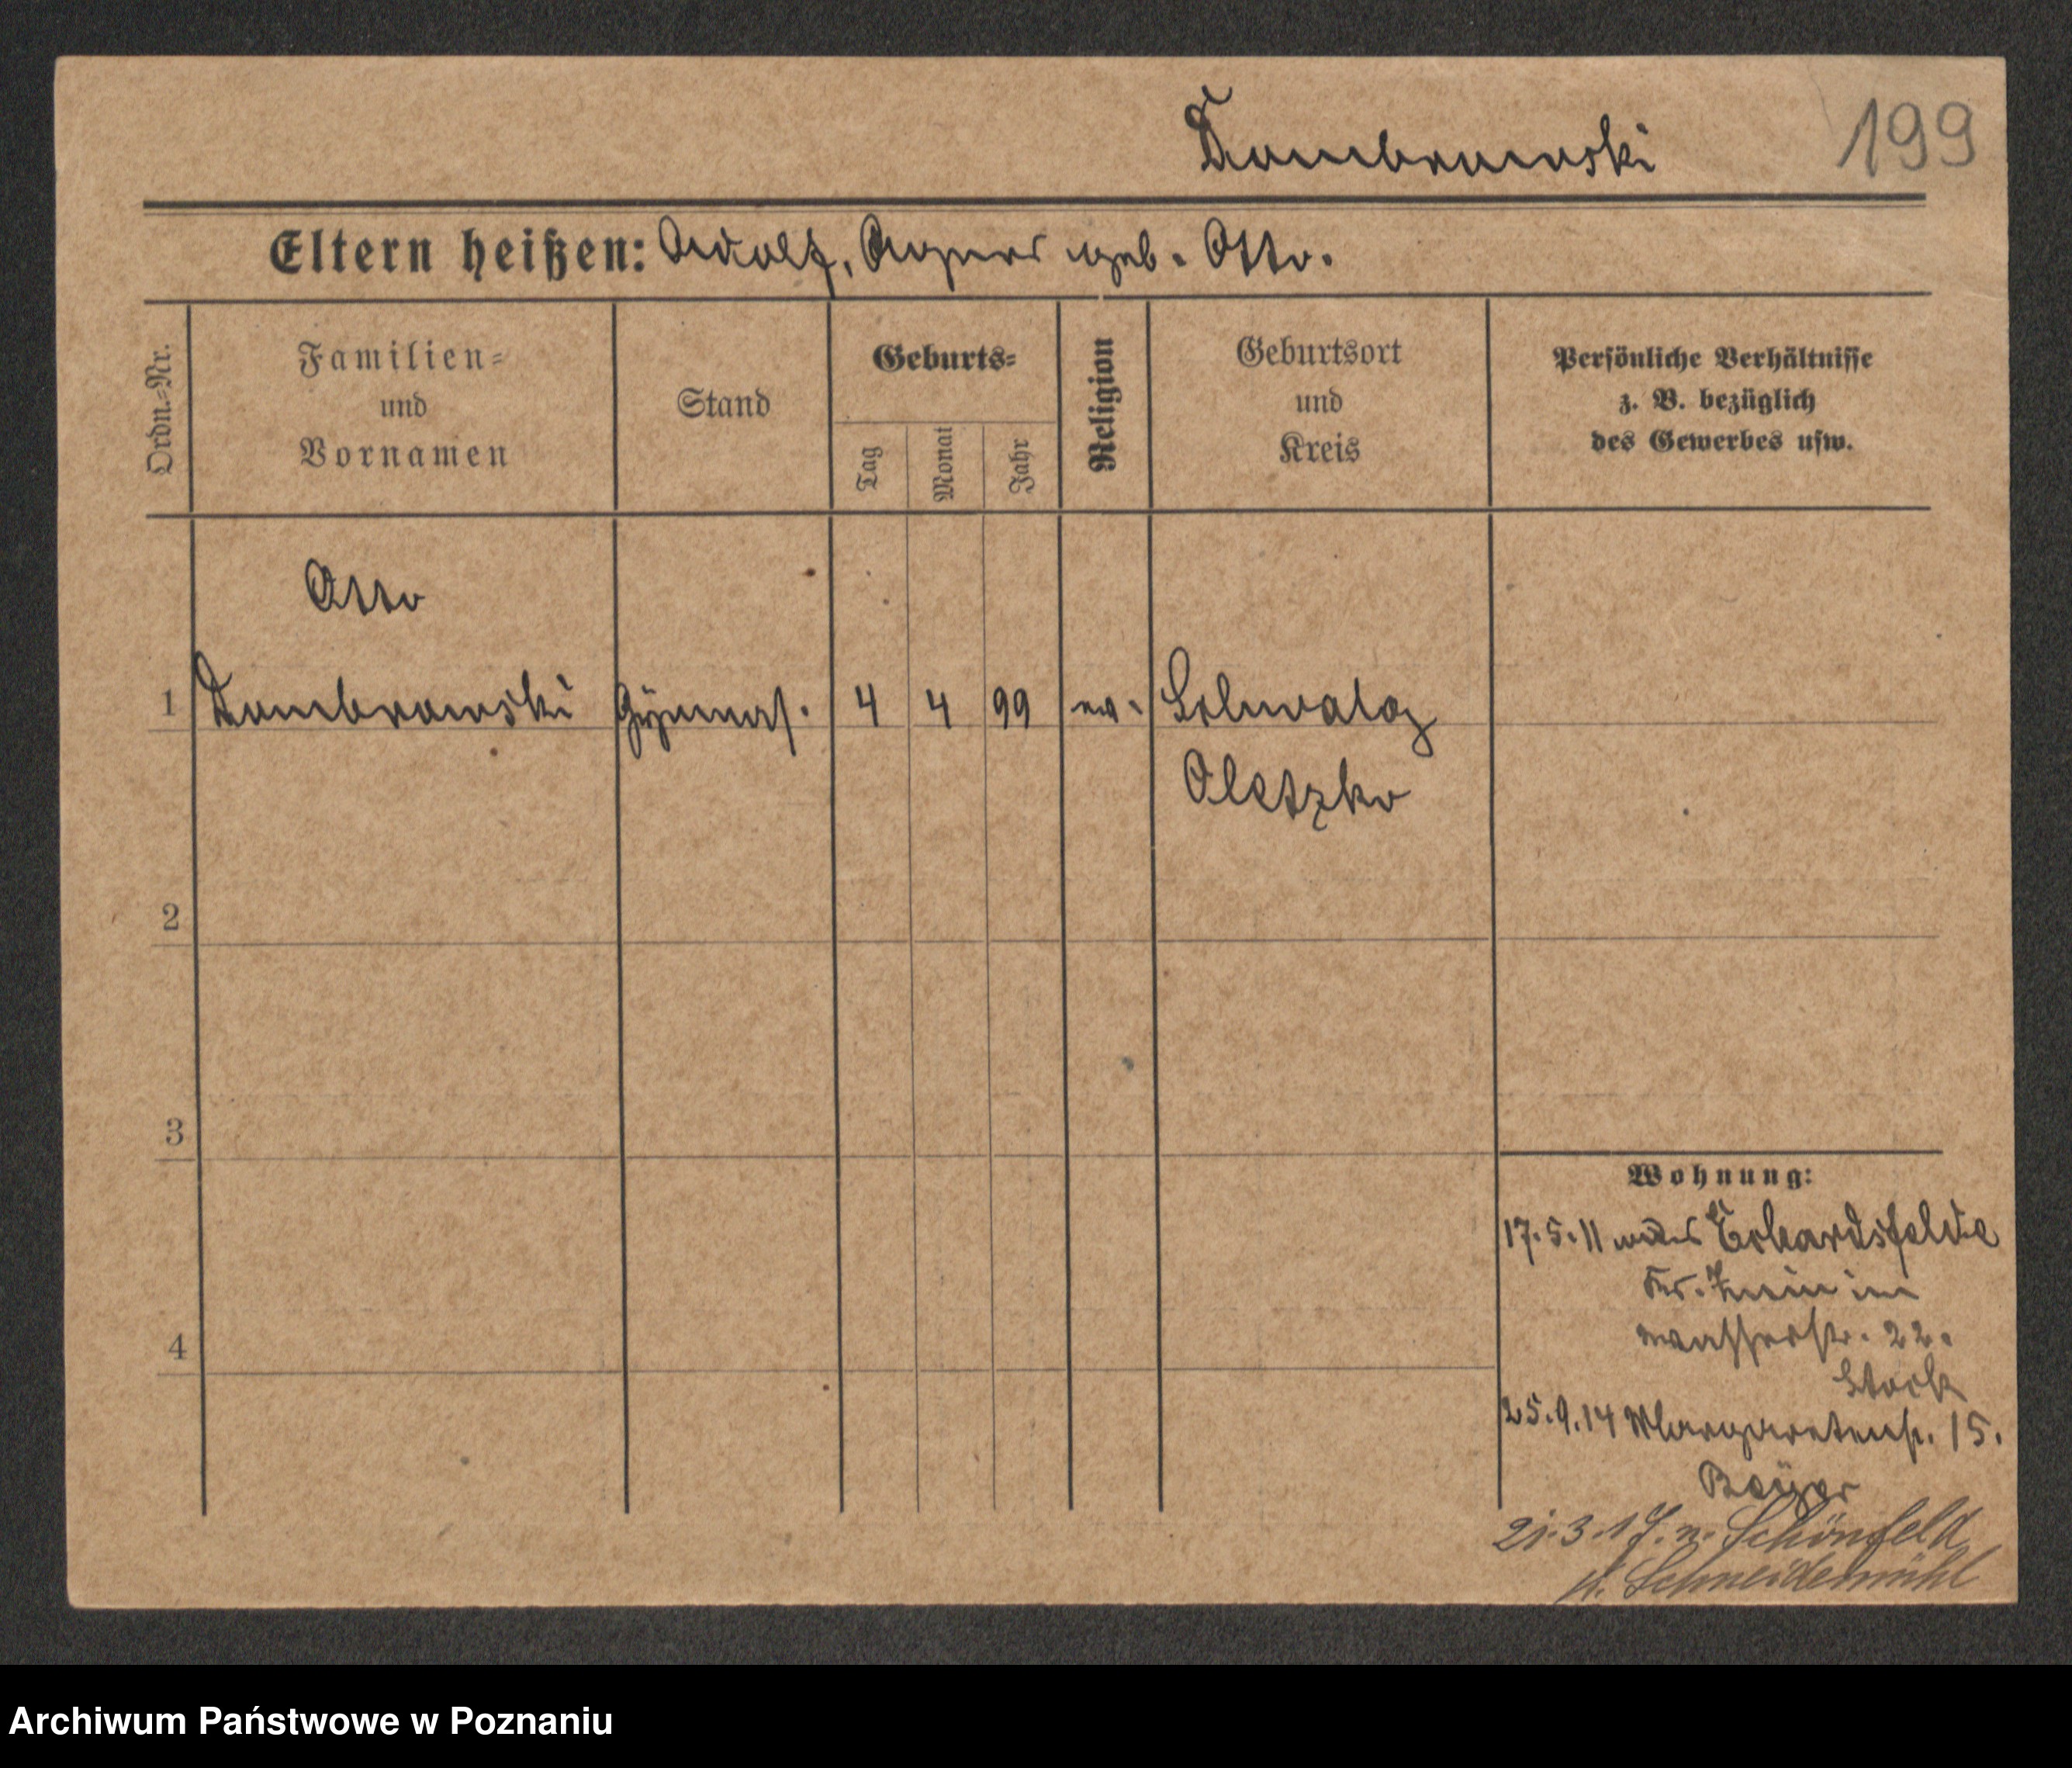 Dombrowski
199
Eltern heißen: Adolf, Agnes geb. Otto.
Ordn.=Nr.
Familien=
und
Vornamen
Stand
Geburts=
Tag
Monat
Jahr
Religion
Geburtsort
und
Kreis
Persönliche Verhältnisse
z. B. bezüglich
des Gewerbes usw.
Otto
1 Dombrowski Gymnas. 4 4 99 ev.
Oletzko
2
3
4
Wohnung:
17.5.11 Erhardsfelde
Kr. Znin in
Wasserstr. 22.
Stock
25.9.14 Margaretenst. 15.
Bayer
21.3.17. n. Schönfeld
k. Schneidemühl
Archiwum Państwowe w Poznaniu